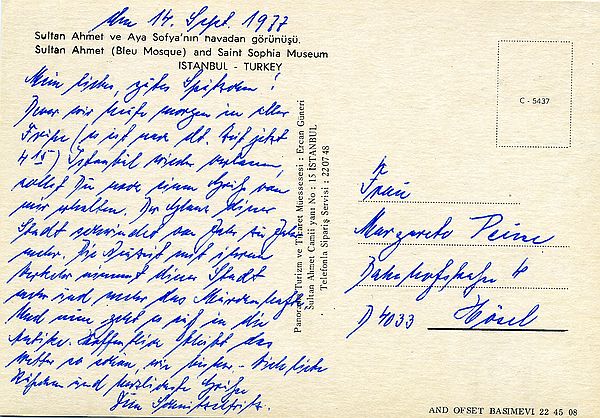 Am 14. Sept. 1977
Sultan Ahmet ve Aya Sofya'nın havadan görünüşü.
Sultan Ahmet (Bleu Mosque) and Saint Sophia Museum
ISTANBUL - TURKEY
Mein liebes, gutes !
Bevor wir heute morgen in aller
Frühe (es ist nach dt. Zeit jetzt
4 15) Istanbul wieder verlassen,
sollst Du noch einen Gruß von
mir erhalten. Der Glanz dieser
Stadt schwindet von Jahr zu Jahr
mehr. Die Neuzeit mit ihrem
Verkehr nimmt dieser Stadt
mehr und mehr das Märchenhafte
Und nun geht es auf in die
Antike. Hoffentlich bleibt das
Wetter so schön, wie bisher. -
und herzlichste Grüße
Dein
Panorama Turizm ve Ticaret Müessesesi : Ercan Güneri
Sultan Ahmet Camii yanı No : 15 İSTANBUL
Telefonla Sipariş Servisi : 220748
C - 5437
Frau
Margarete Peine
Bahnhofstraße 4
D 4033 Hösel
AND OFSET BASIMEVI 22 45 08